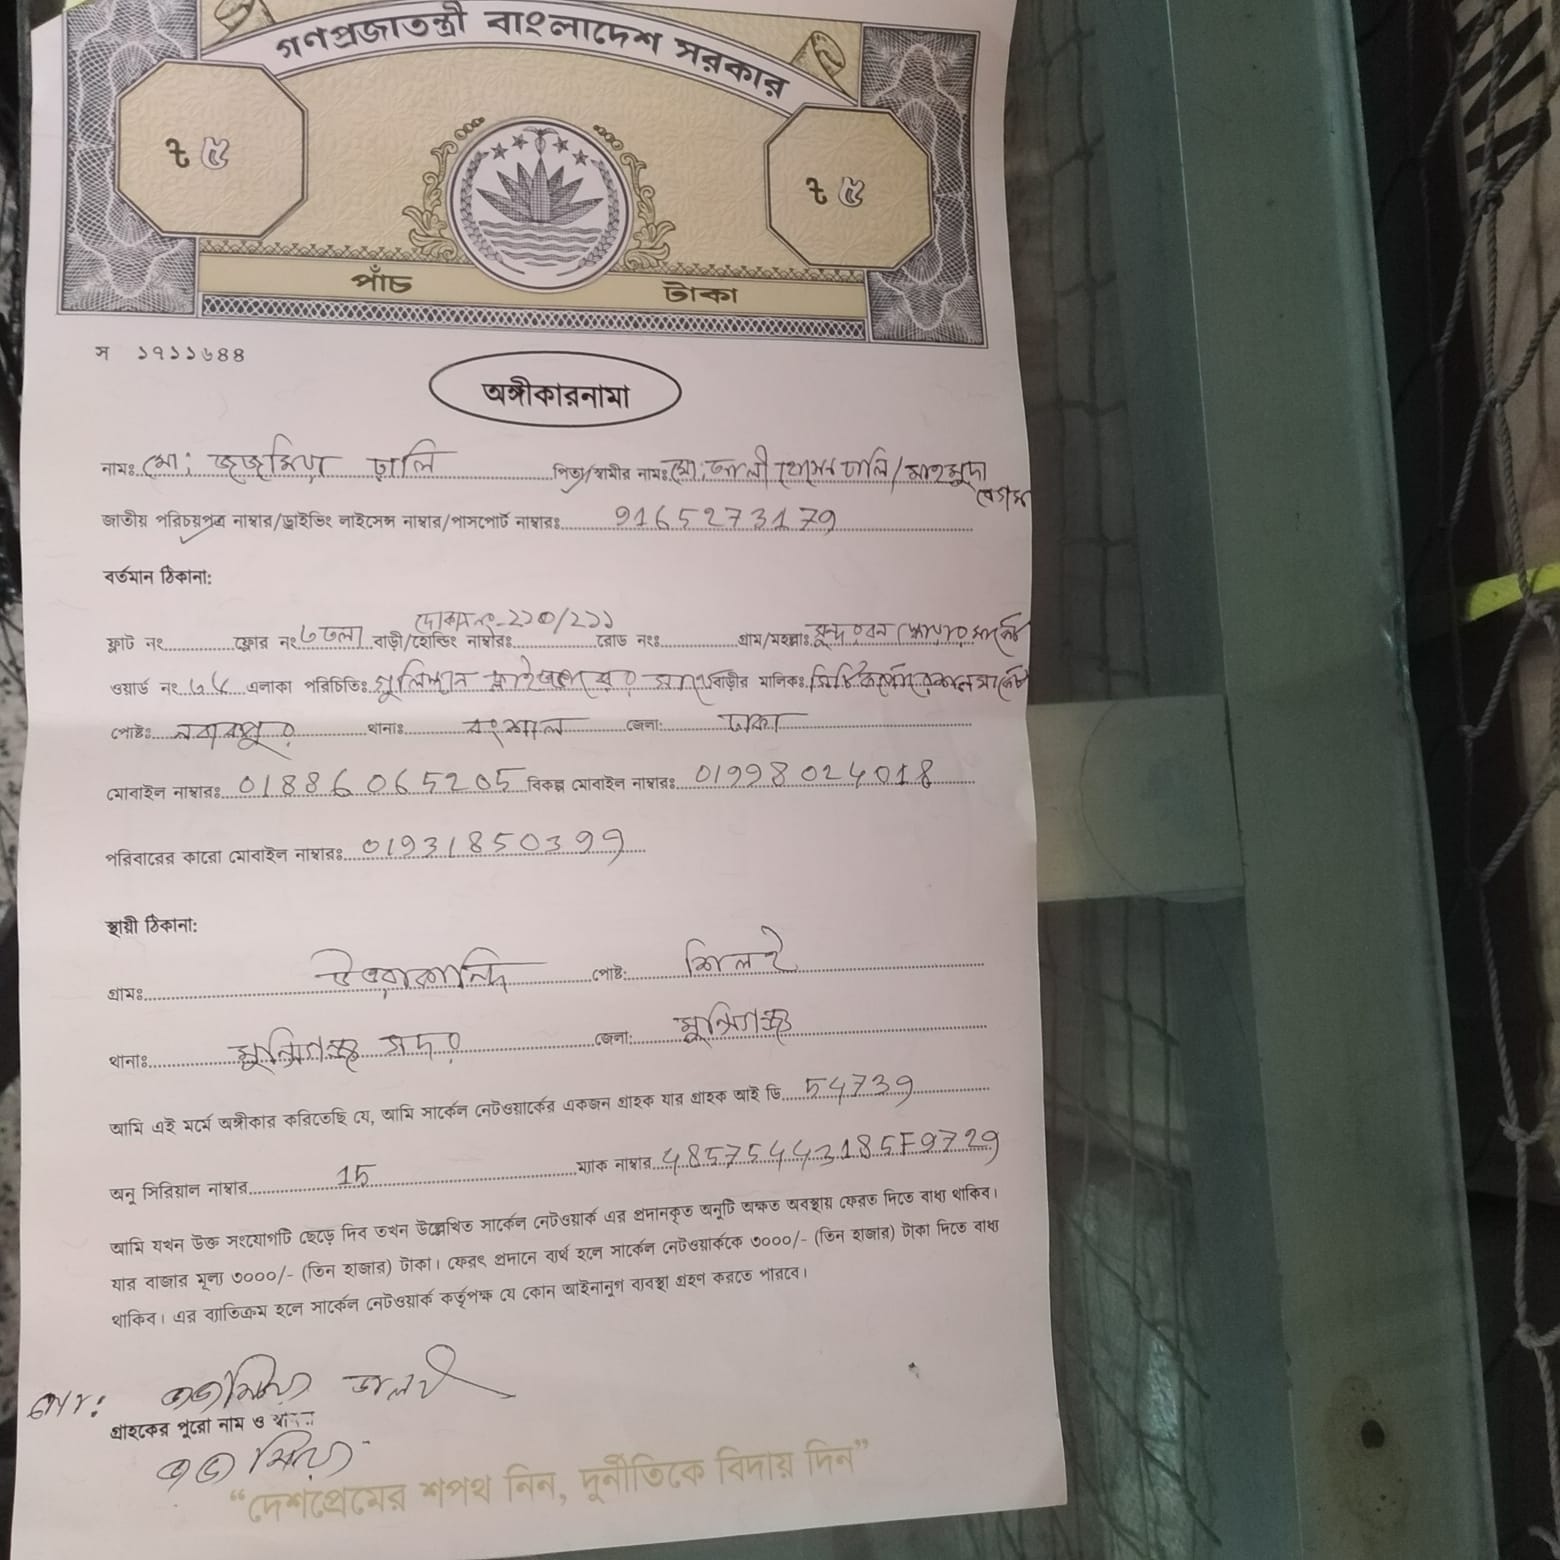 গণপ্রজাতন্ত্রী বাংলাদেশ সরকার
৳ ৫
৳ ৫
পাঁচ টাকা
স ১৭১১৬৪৪
অঙ্গীকারনামা
নামঃ মো: জজমিয়া ঢালি পিতা/স্বামীর নামঃ মো: আলী হোসেন ঢালি/মাহমুদা বেগম
জাতীয় পরিচয়পত্র নাম্বার/ড্রাইভিং লাইসেন্স নাম্বার/পাসপোর্ট নাম্বারঃ 9165273179
বর্তমান ঠিকানা:
দোকান নং-২১০/২১১
ফ্লাট নং ফ্লোর নং ৩ তলা বাড়ী/হোল্ডিং নাম্বারঃ রোড নংঃ গ্রাম/মহল্লাঃ সুন্দরবন স্কোয়ার মার্কেট
ওয়ার্ড নং ৩৪ এলাকা পরিচিতিঃ গুলিস্থান বাড়ীর মালিকঃ সিটি কর্পোরেশন মার্কেট
পোষ্টঃ নবাবপুর থানাঃ বংশাল জেলা: ঢাকা
মোবাইল নাম্বারঃ 01886065205 বিকল্প মোবাইল নাম্বারঃ 01998024018
পরিবারের কারো মোবাইল নাম্বারঃ 01931850399
স্থায়ী ঠিকানা:
গ্রামঃ উত্তরকান্দি পোষ্ট: শিলই
থানাঃ মুন্সিগঞ্জ সদর জেলা: মুন্সিগঞ্জ
আমি এই মর্মে অঙ্গীকার করিতেছি যে, আমি সার্কেল নেটওয়ার্কের একজন গ্রাহক যার গ্রাহক আই ডি 54739
অনু সিরিয়াল নাম্বার 15 ম্যাক নাম্বার 48575443185F9729
আমি যখন উক্ত সংযোগটি ছেড়ে দিব তখন উল্লেখিত সার্কেল নেটওয়ার্ক এর প্রদানকৃত অনুটি অক্ষত অবস্থায় ফেরত দিতে বাধ্য থাকিব।
যার বাজার মূল্য ৩০০০/- (তিন হাজার) টাকা। ফেরৎ প্রদানে ব্যর্থ হলে সার্কেল নেটওয়ার্ককে ৩০০০/- (তিন হাজার) টাকা দিতে বাধ্য
থাকিব। এর ব্যাতিক্রম হলে সার্কেল নেটওয়ার্ক কর্তৃপক্ষ যে কোন আইনানুগ ব্যবস্থা গ্রহণ করতে পারবে।
জজমিয়া ঢালী
গ্রাহকের পুরো নাম ও
জজমিয়া
“দেশপ্রেমের শপথ নিন, দুর্নীতিকে বিদায় দিন”